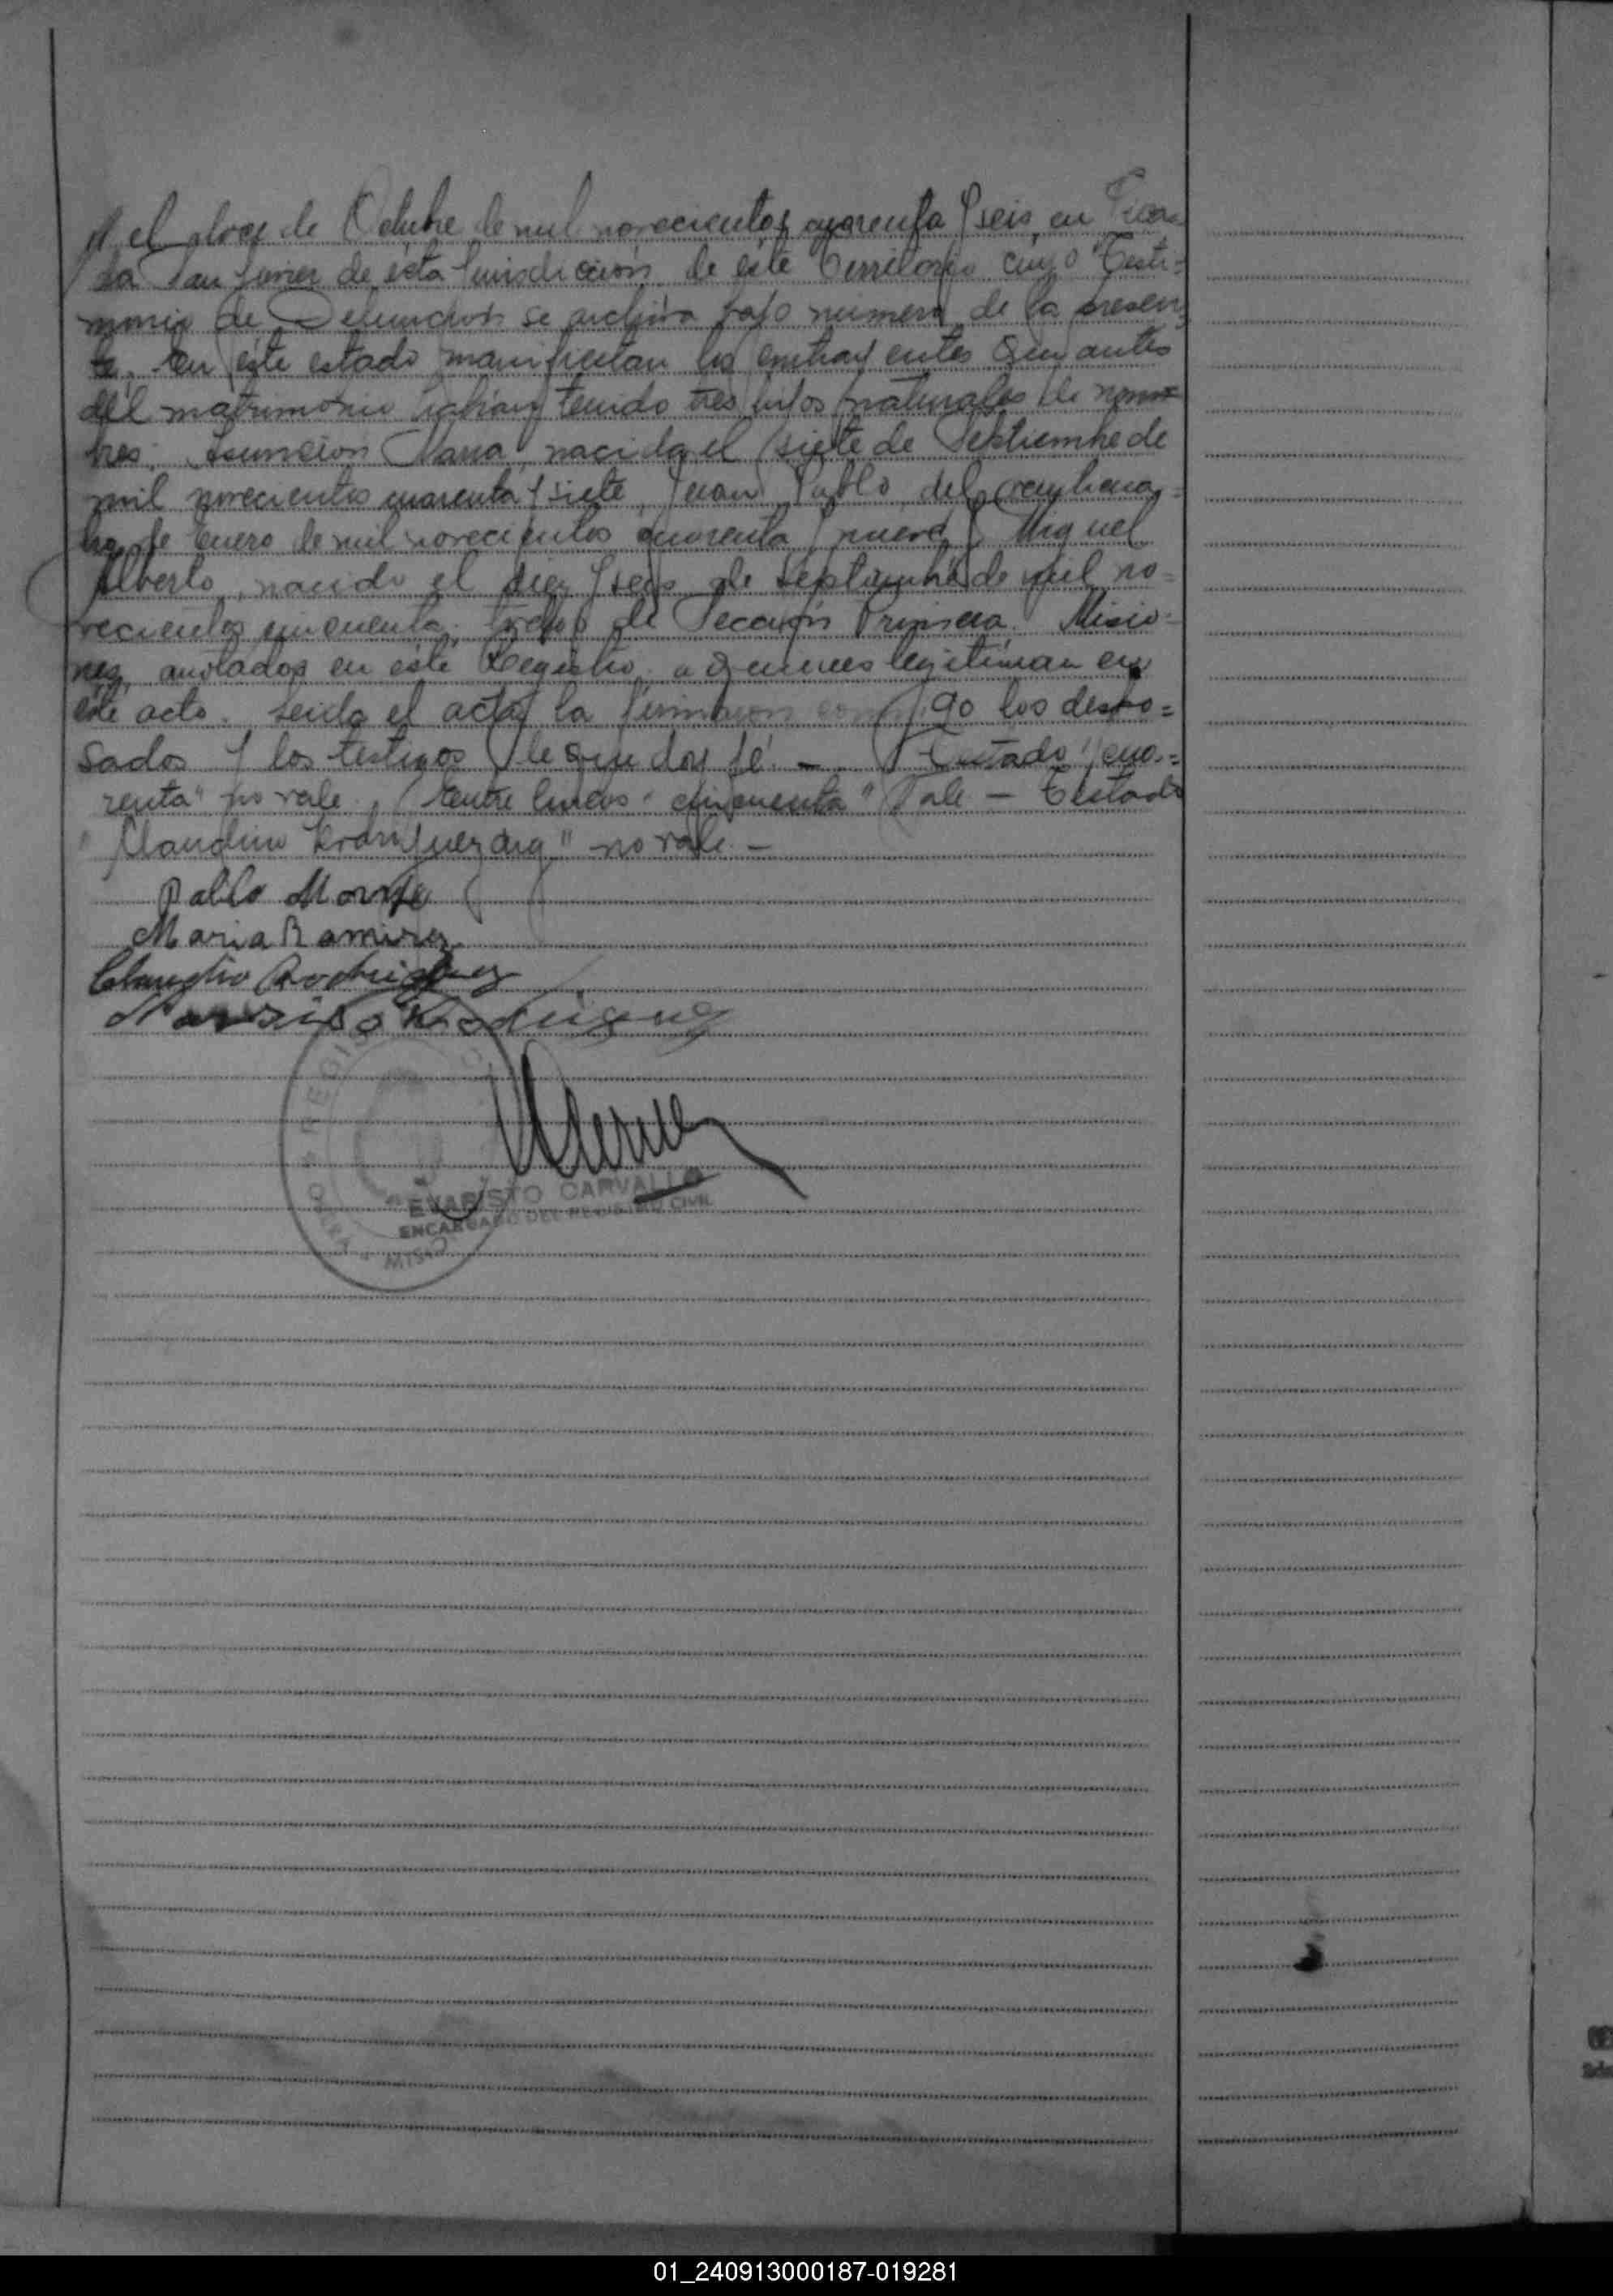 el doce de Octubre de mil novecientos cuarenta y seis, en Pica=
da San Javier de ésta Jurisdicción de éste Territorio cuyo Testi=
monio de Defunción se archiva bajo número de la presen
te. En éste estado manifiestan los contrayentes que antes
del matrimonio habian tenido tres hijos naturales de nom=
bres: Asunción Maria, nacida el siete de Septiembre de
mil novecientos cuarenta y siete, Juan Pablo del
de Enero de mil novecientos cuarenta y nueve y Miguel
Alberto, nacido el diez y seis de Septiembre de mil no=
vecientos cincuenta, todos de Sección Primera. Misio=
nes, anotados en éste Registro, a quienes legitiman en
éste acto. Leida el acta la firmaron conmigo los despo=
sados y los testigos de que doy fé. — Testado "cua=
renta" no vale. Entre lineas "cincuenta" Vale — Testado
" " no vale. —
Pablo
Maria Ramirez
Claudio Rodriguez
Rodriguez
REGIS
EVARISTO CARVALLO
ENCARGADO DEL REGISTRO CIVIL
01_240913000187-019281